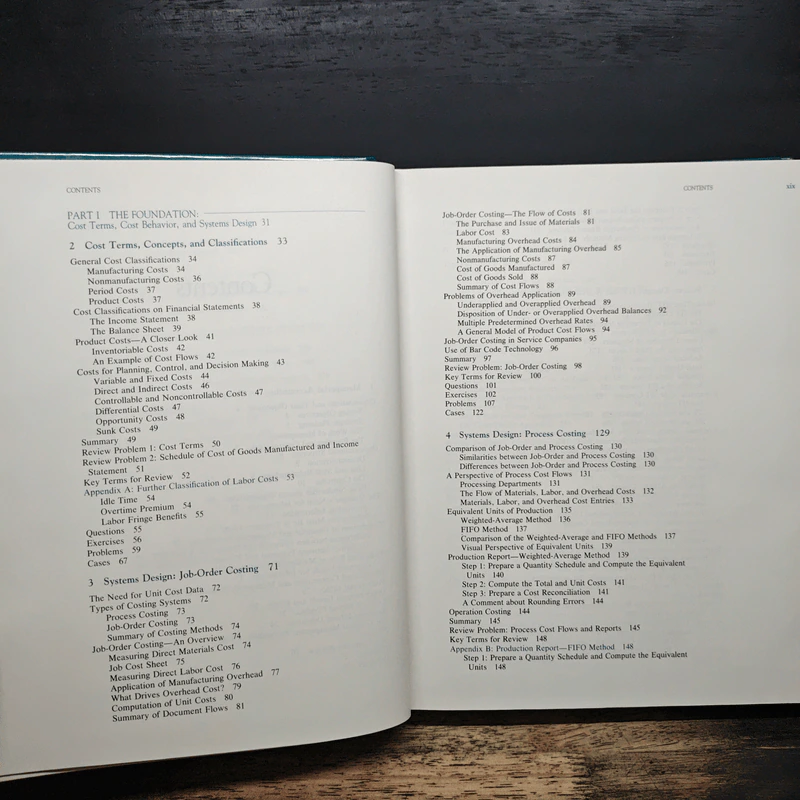 CONTENTS
PART I THE FOUNDATION:
Cost Terms, Cost Behavior, and Systems Design 31
2 Cost Terms, Concepts, and Classifications 33
General Cost Classifications 34
Manufacturing Costs 34
Nonmanufacturing Costs 36
Period Costs 37
Product Costs 37
Cost Classifications on Financial Statements 38
The Income Statement 38
The Balance Sheet 39
Product Costs—A Closer Look 41
Inventoriable Costs 42
An Example of Cost Flows 42
Costs for Planning, Control, and Decision Making 43
Variable and Fixed Costs 44
Direct and Indirect Costs 46
Controllable and Noncontrollable Costs 47
Differential Costs 47
Opportunity Costs 48
Sunk Costs 49
Summary 49
Review Problem 1: Cost Terms 50
Review Problem 2: Schedule of Cost of Goods Manufactured and Income
Statement 51
Key Terms for Review 52
Appendix A: Further Classification of Labor Costs 53
Idle Time 54
Overtime Premium 54
Labor Fringe Benefits 55
Questions 55
Exercises 56
Problems 59
Cases 67
3 Systems Design: Job-Order Costing 71
The Need for Unit Cost Data 72
Types of Costing Systems 72
Process Costing 73
Job-Order Costing 73
Summary of Costing Methods 74
Job-Order Costing—An Overview 74
Measuring Direct Materials Cost 74
Job Cost Sheet 75
Measuring Direct Labor Cost 76
Application of Manufacturing Overhead 77
What Drives Overhead Cost? 79
Computation of Unit Costs 80
Summary of Document Flows 81
CONTENTS xix
Job-Order Costing—The Flow of Costs 81
The Purchase and Issue of Materials 81
Labor Cost 83
Manufacturing Overhead Costs 84
The Application of Manufacturing Overhead 85
Nonmanufacturing Costs 87
Cost of Goods Manufactured 87
Cost of Goods Sold 88
Summary of Cost Flows 88
Problems of Overhead Application 89
Underapplied and Overapplied Overhead 89
Disposition of Under- or Overapplied Overhead Balances 92
Multiple Predetermined Overhead Rates 94
A General Model of Product Cost Flows 94
Job-Order Costing in Service Companies 95
Use of Bar Code Technology 96
Summary 97
Review Problem: Job-Order Costing 98
Key Terms for Review 100
Questions 101
Exercises 102
Problems 107
Cases 122
4 Systems Design: Process Costing 129
Comparison of Job-Order and Process Costing 130
Similarities between Job-Order and Process Costing 130
Differences between Job-Order and Process Costing 130
A Perspective of Process Cost Flows 131
Processing Departments 131
The Flow of Materials, Labor, and Overhead Costs 132
Materials, Labor, and Overhead Cost Entries 133
Equivalent Units of Production 135
Weighted-Average Method 136
FIFO Method 137
Comparison of the Weighted-Average and FIFO Methods 137
Visual Perspective of Equivalent Units 139
Production Report—Weighted-Average Method 139
Step 1: Prepare a Quantity Schedule and Compute the Equivalent
Units 140
Step 2: Compute the Total and Unit Costs 141
Step 3: Prepare a Cost Reconciliation 141
A Comment about Rounding Errors 144
Operation Costing 144
Summary 145
Review Problem: Process Cost Flows and Reports 145
Key Terms for Review 148
Appendix B: Production Report—FIFO Method 148
Step 1: Prepare a Quantity Schedule and Compute the Equivalent
Units 148